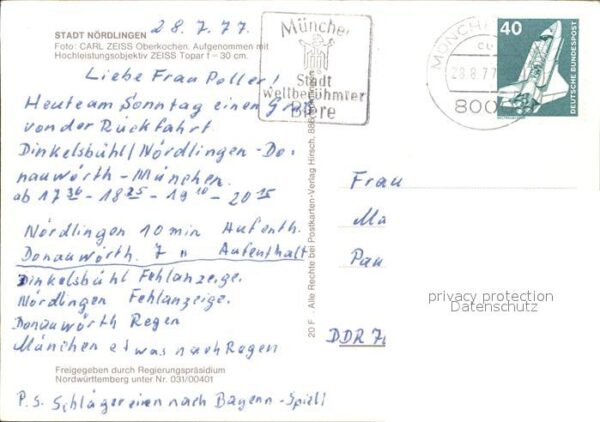 STADT NÖRDLINGEN
Foto: CARL ZEISS Oberkochen. Aufgenommen mit
Hochleistungsobjektiv ZEISS Topar f – 30 cm.
28.7.77.
Liebe Frau Poller!
Heute am Sonntag einen Gruß
von der Rückfahrt
Dinkelsbühl/Nördlingen-Do-
nauwörth-München.
ab 17 36 - 18 25 - 19 10 - 20 15
Nördlingen 10 min Aufenth.
Donauwörth. 7 " Aufenthalt
Dinkelsbühl Fehlanzeige.
Nördlingen Fehlanzeige.
Donauwörth Regen
München etwas nach Regen
Freigegeben durch Regierungspräsidium
Nordwürttemberg unter Nr. 031/00401
P.S. Schlägereien nach Bayern-Spiel!
20 F . Alle Rechte bei Postkarten-Verlag Hirsch,
München
Stadt
weltberühmter
Biere
MÜNCH
28.8.77
800
40
DEUTSCHE BUNDESPOST
Frau
Ma
Pau
DDR 70
privacy protection
Datenschutz